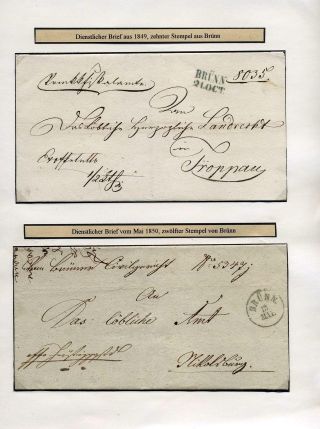 Dienstlicher Brief aus 1849, zehnter Stempel aus Brünn
BRÜNN
21.OCT.
8035
An
Das löbliche Herzogliche Landrecht
in
Troppau
Dienstlicher Brief vom Mai 1850, zwölfter Stempel von Brünn
Brünner Civilgericht
5347
BRÜNN
MAI
An
Das löbliche Amt
Nikolsburg